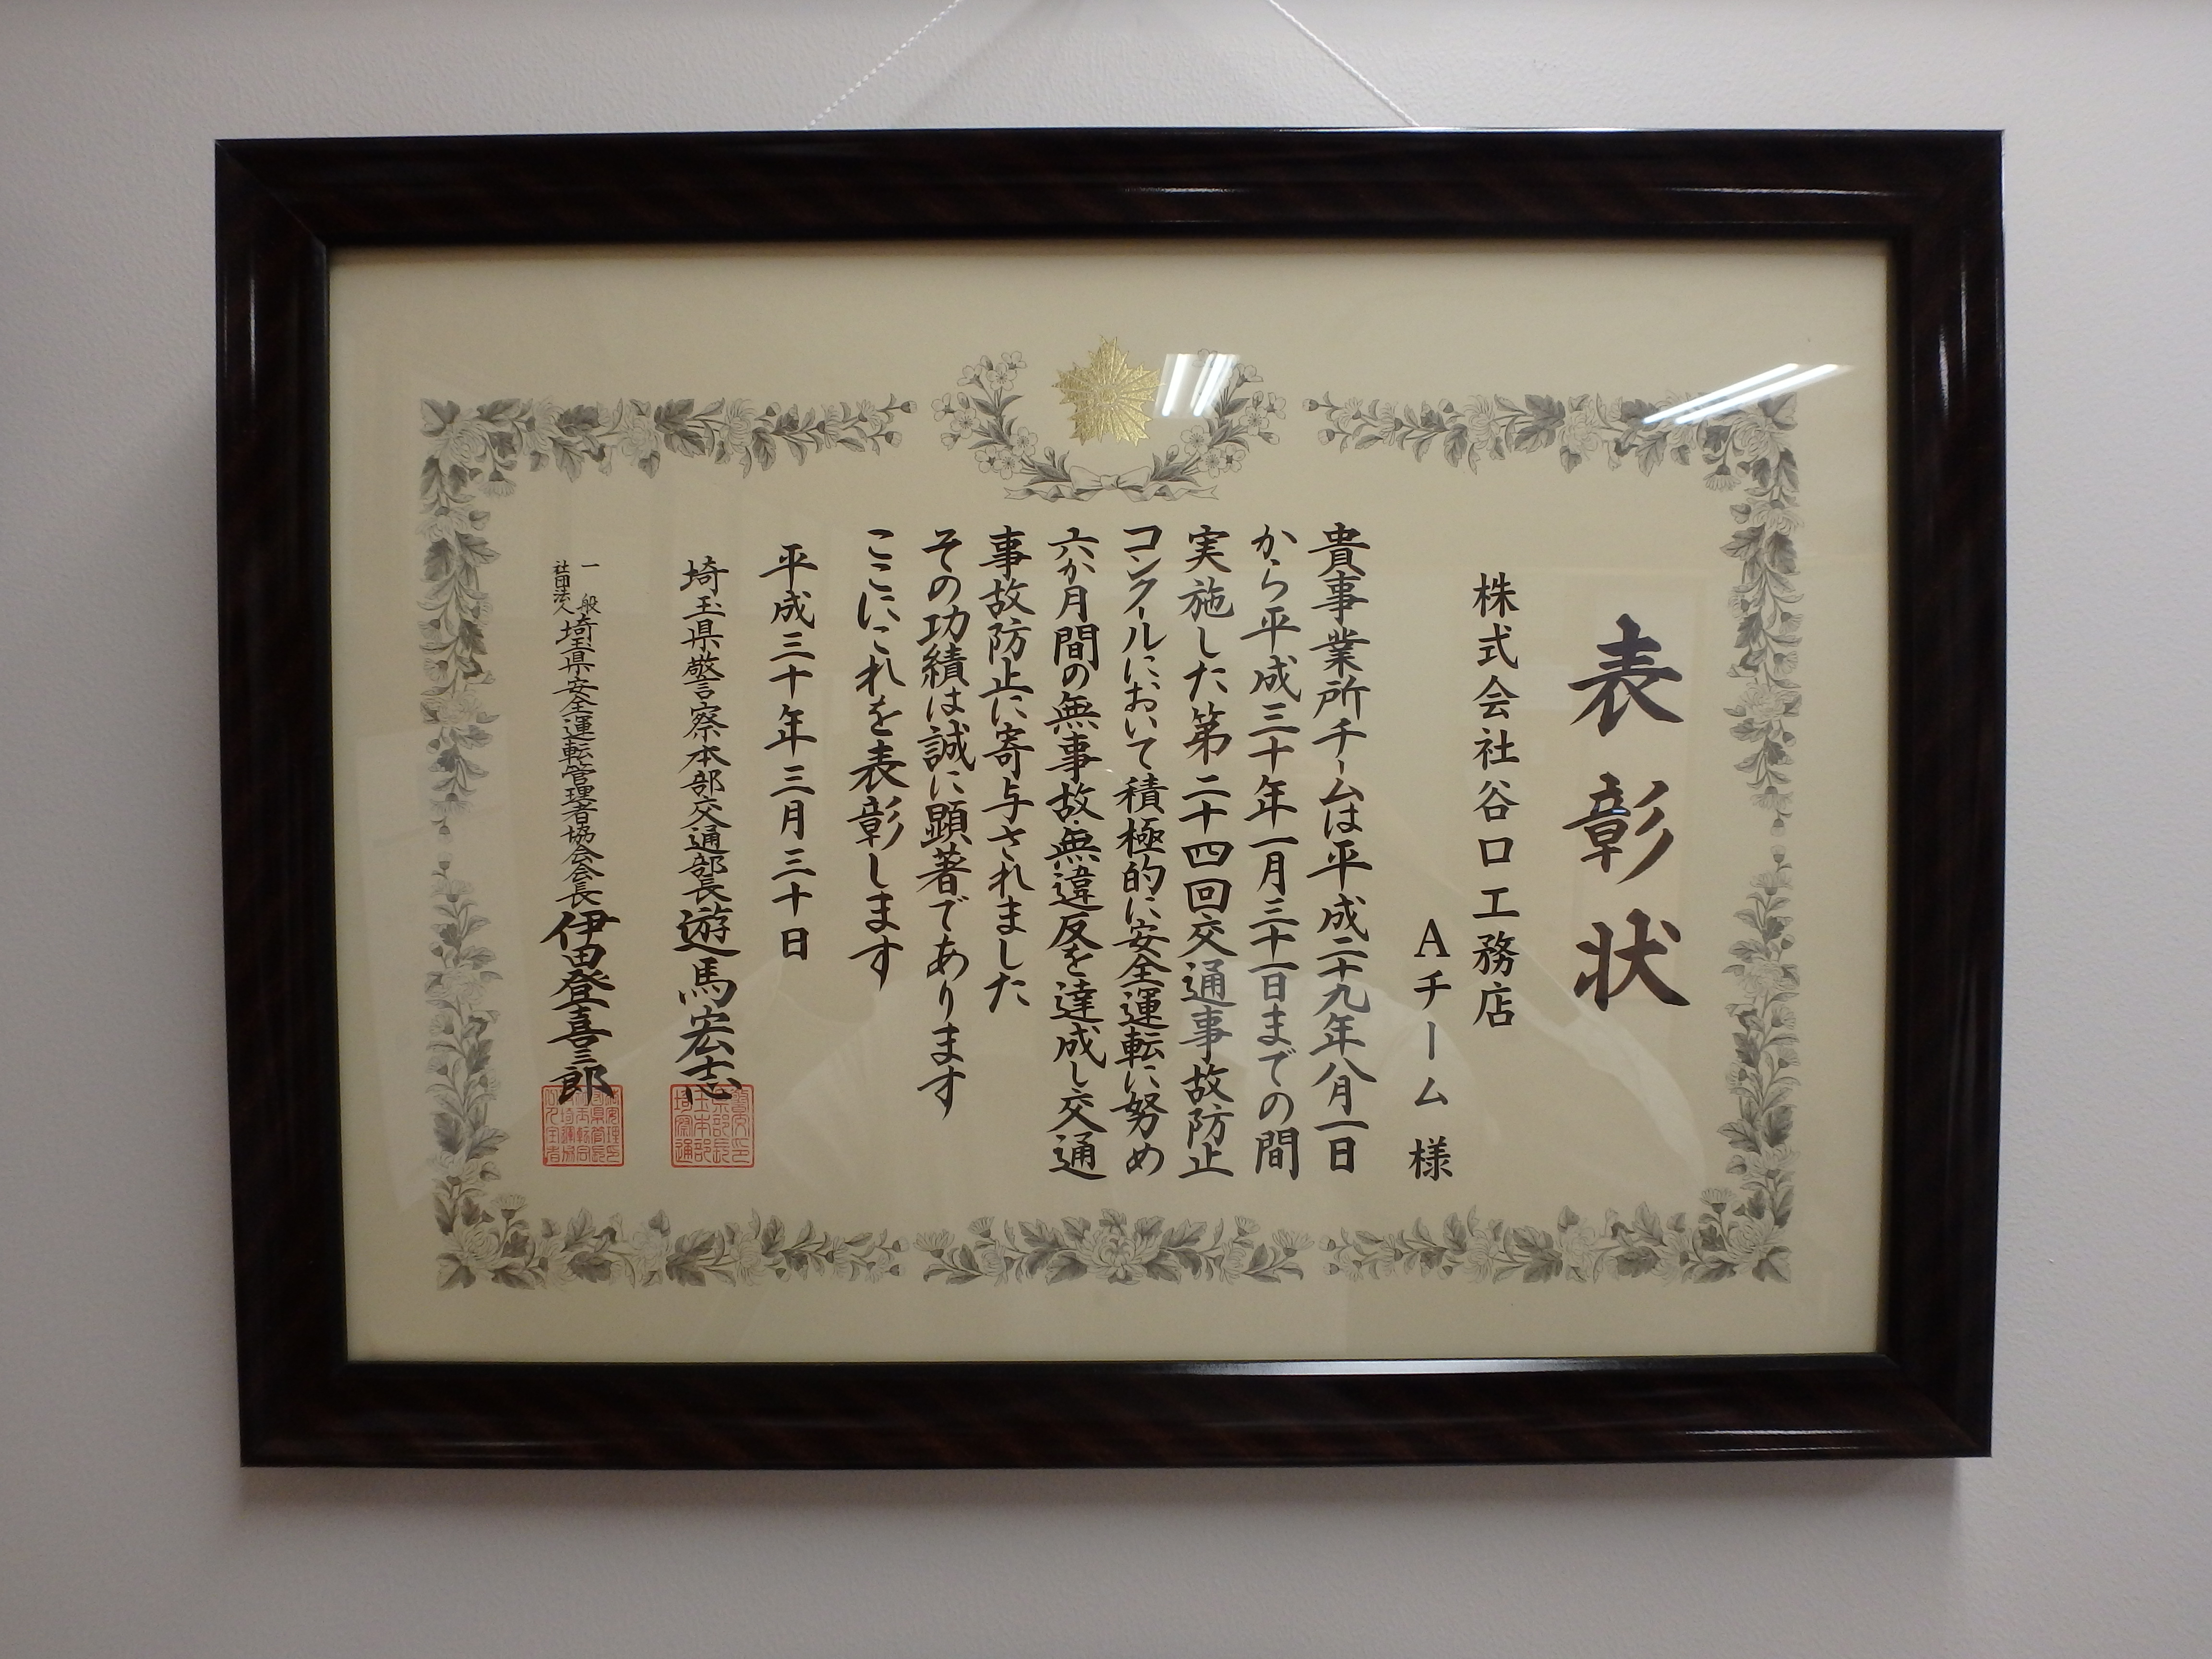 表彰状
株式会社谷口工務店
Aチーム 様
貴事業所チームは平成二十九年八月一日
から平成三十年一月三十一日までの間
実施した第二十四回交通事故防止
コンクールにおいて積極的に安全運転に努め
六か月間の無事故・無違反を達成し交通
事故防止に寄与されました
その功績は誠に顕著であります
ここにこれを表彰します
平成三十年三月三十日
埼玉県警察本部交通部長 遊馬宏志
一般社団法人 埼玉県安全運転管理者協会会長 伊田登喜三郎